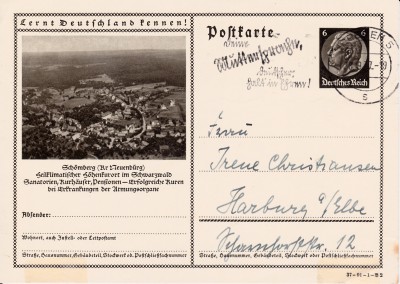 Lernt Deutschland kennen!
Postkarte
Deine
Muttersprache,
Deutscher,
halt in Ehren!
6 6
Deutsches Reich
Schömberg (Kr. Neuenbürg)
Heilklimatischer Höhenkurort im Schwarzwald
Sanatorien, Kurhäuser, Pensionen — Erfolgreiche Kuren
bei Erkrankungen der Atmungsorgane
Absender:
Wohnort, auch Zustell- oder Leitpostamt
Straße, Hausnummer, Gebäudeteil, Stockwerk od. Postschließfachnummer
Frau
Irene Christiansen
Harburg a/Elbe
Scharnhorststr. 12
Straße, Hausnummer, Gebäudeteil, Stockwerk oder Postschließfachnummer
37-91-1-B2